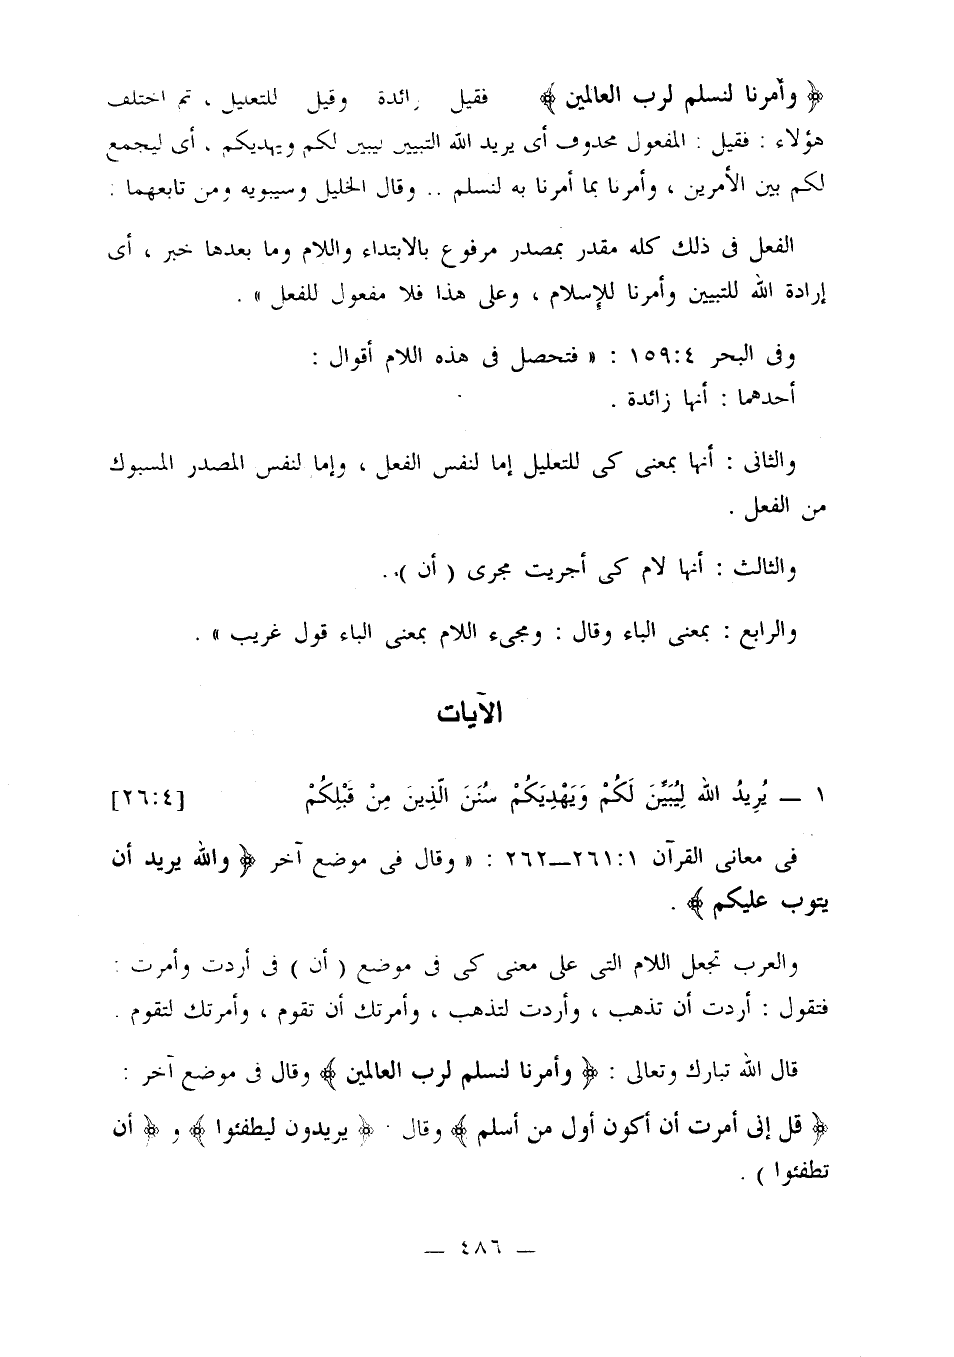 ﴿ وأمرنا لنسلم لرب العالمين ﴾ فقيل زائدة وقيل للتعليل ، ثم اختلف
هؤلاء : فقيل : المفعول محذوف أى يريد الله التبيين ليبين لكم ويهديكم . أى ليجمع
لكم بين الأمرين ، وأمرنا بما أمرنا به لنسلم .. وقال الخليل وسيبويه ومن تابعهما :
الفعل فى ذلك كله مقدر بمصدر مرفوع بالابتداء واللام وما بعدها خبر ، أى
إرادة الله للتبيين وأمرنا للإسلام ، وعلى هذا فلا مفعول للفعل » .
وفى البحر ٤:١٥٩ : « فتحصل فى هذه اللام أقوال :
أحدهما : أنها زائدة .
والثانى : أنها بمعنى كى للتعليل إما لنفس الفعل ، وإما لنفس المصدر المسبوك
من الفعل .
والثالث : أنها لام كى أجريت مجرى ( أن ) ..
والرابع : بمعنى الباء وقال : ومجىء اللام بمعنى الباء قول غريب » .
الآيات
١ ــ يُرِيدُ الله لِيُبَيِّنَ لَكُمْ وَيَهْدِيَكُمْ سُنَنَ الَّذِينَ مِنْ قَبْلِكُمْ [٤:٢٦]
فى معانى القرآن ١:٢٦١ــ٢٦٢ : « وقال فى موضع آخر ﴿ والله يريد أن
يتوب عليكم ﴾ .
والعرب تجعل اللام التى على معنى كى فى موضع ( أن ) فى أردت وأمرت :
فتقول : أردت أن تذهب ، وأردت لتذهب ، وأمرتك أن تقوم ، وأمرتك لتقوم .
قال الله تبارك وتعالى : ﴿ وأمرنا لنسلم لرب العالمين ﴾ وقال فى موضع آخر :
﴿ قل إنى أمرت أن أكون أول من أسلم ﴾ وقال ﴿ يريدون ليطفئوا ﴾ و ﴿ أن
تطفئوا ) .
ــ ٤٨٦ ــ